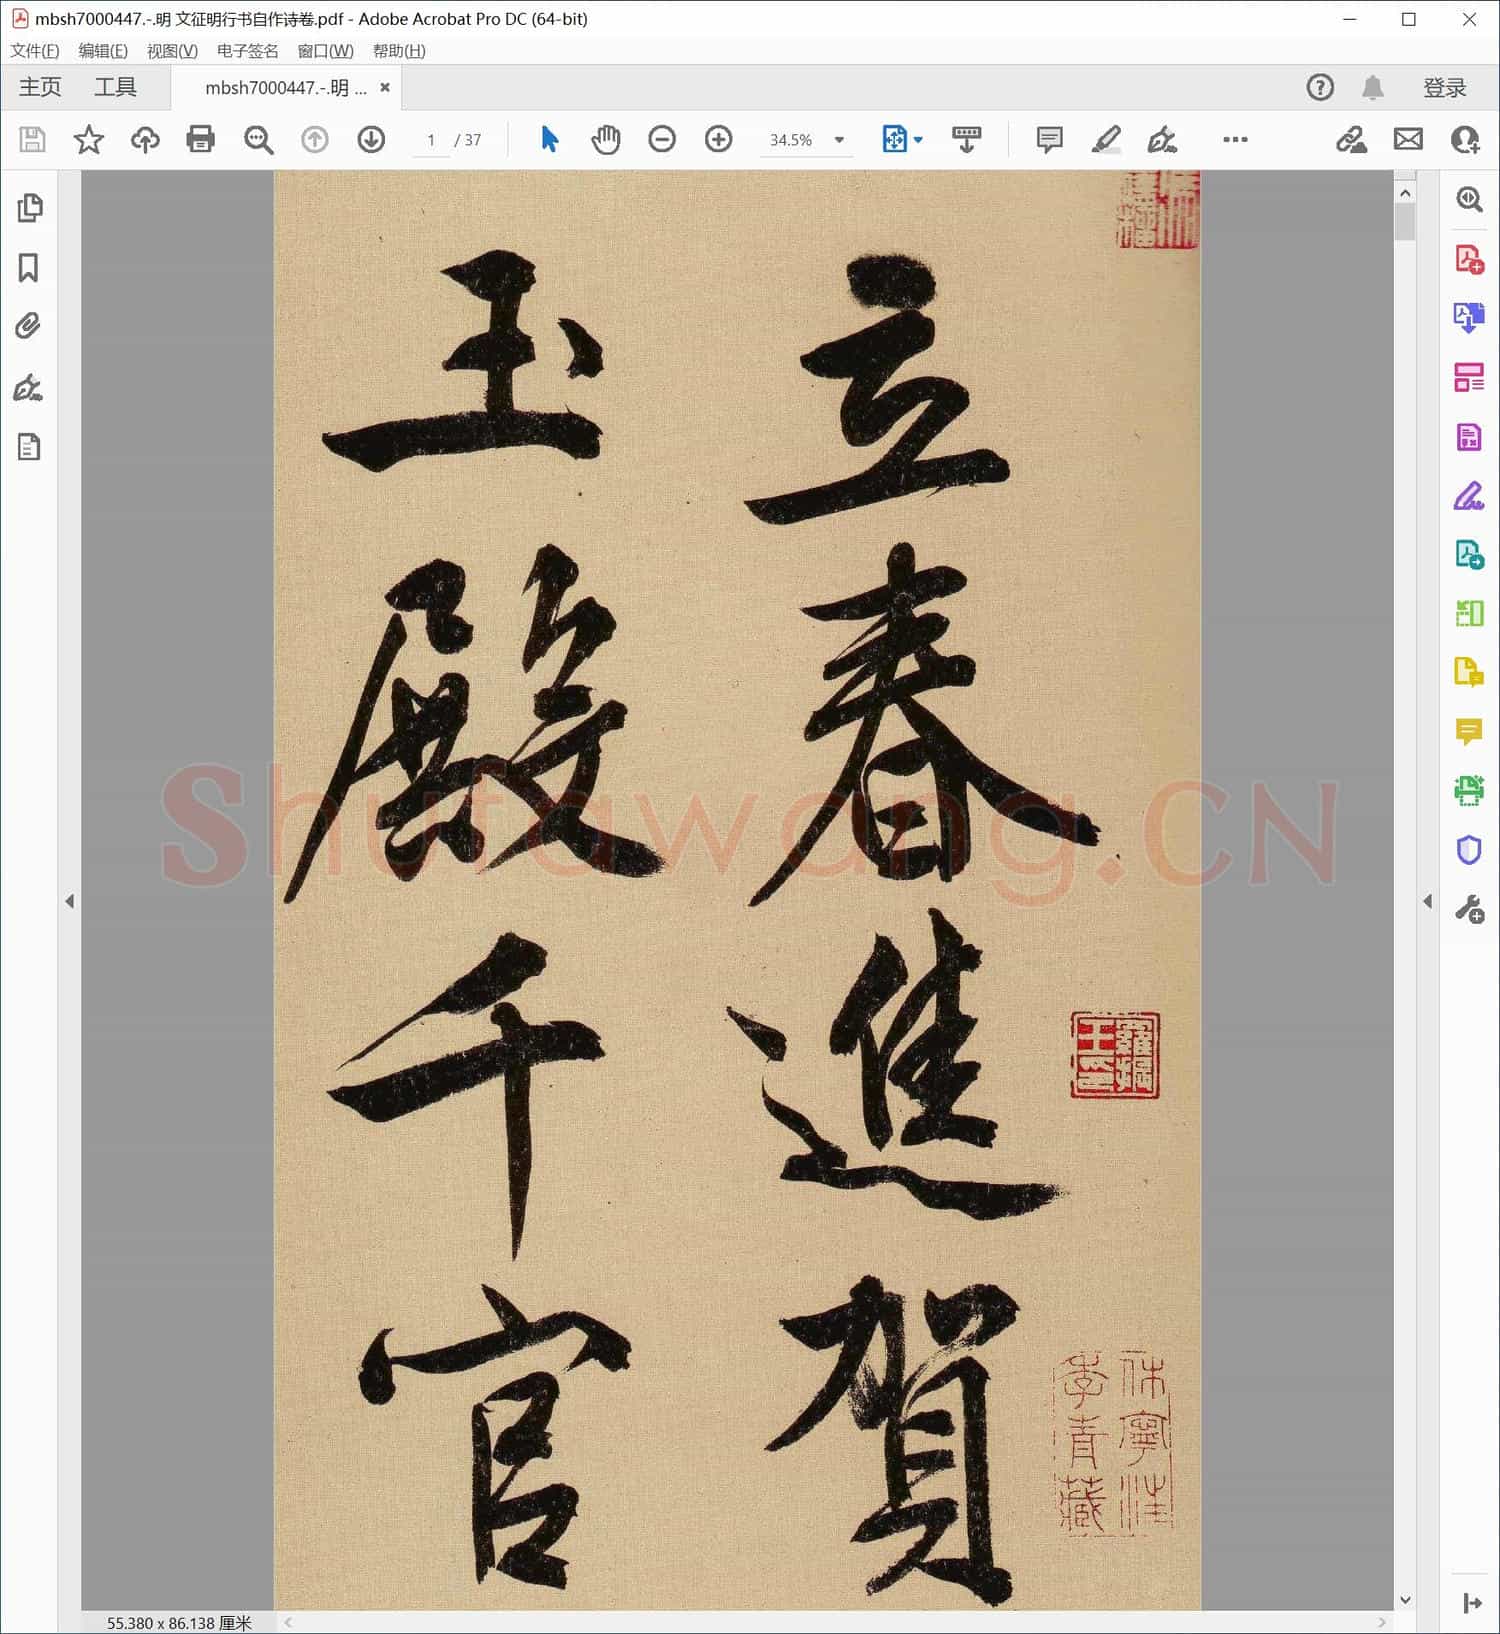 mbsh7000447.-.明 文征明行书自作诗卷.pdf - Adobe Acrobat Pro DC (64-bit)
文件(F) 编辑(E) 视图(V) 电子签名 窗口(W) 帮助(H)
主页 工具 mbsh7000447.-.明 ... 登录
1 / 37 34.5%
立春進賀
玉殿千官
Shufawang.CN
休寧汪
季青藏
55.380 x 86.138 厘米